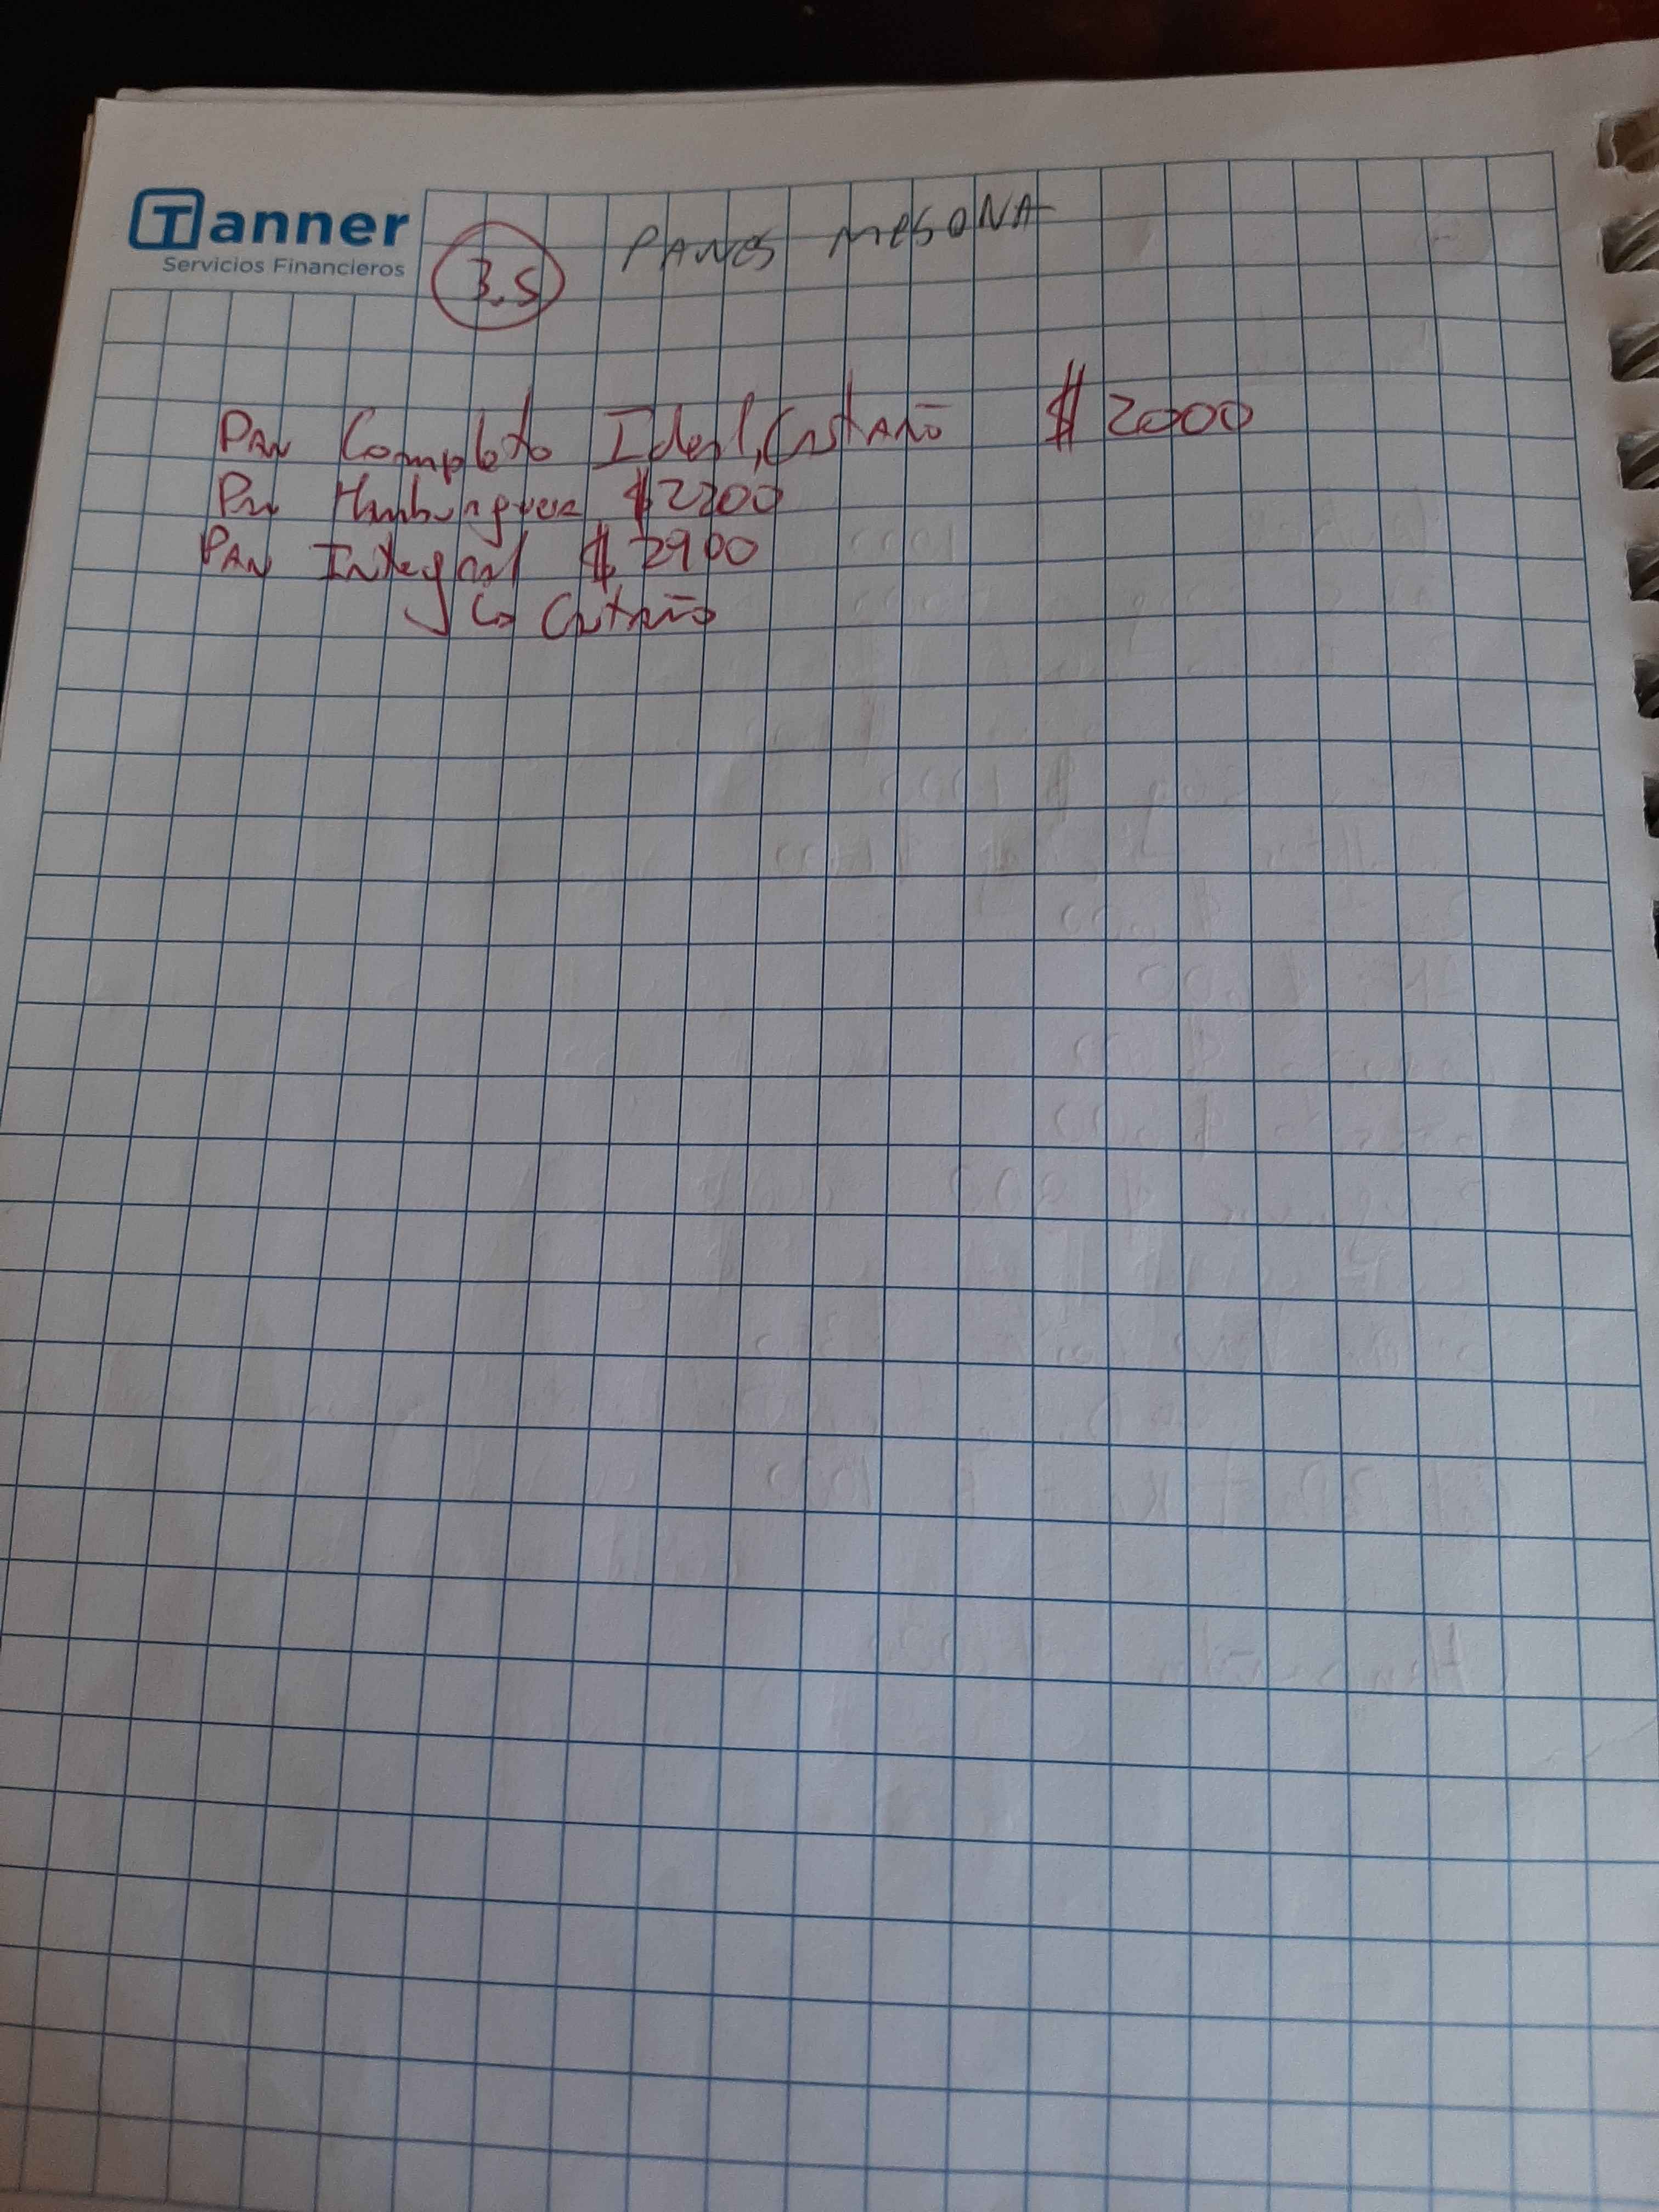 Tanner
Servicios Financieros
3.5 PANES MESONA
PAN Completo Ideal, Castaño $ 2000
Pan Hamburguesa $2200
PAN Integral $ 2900
Castaño